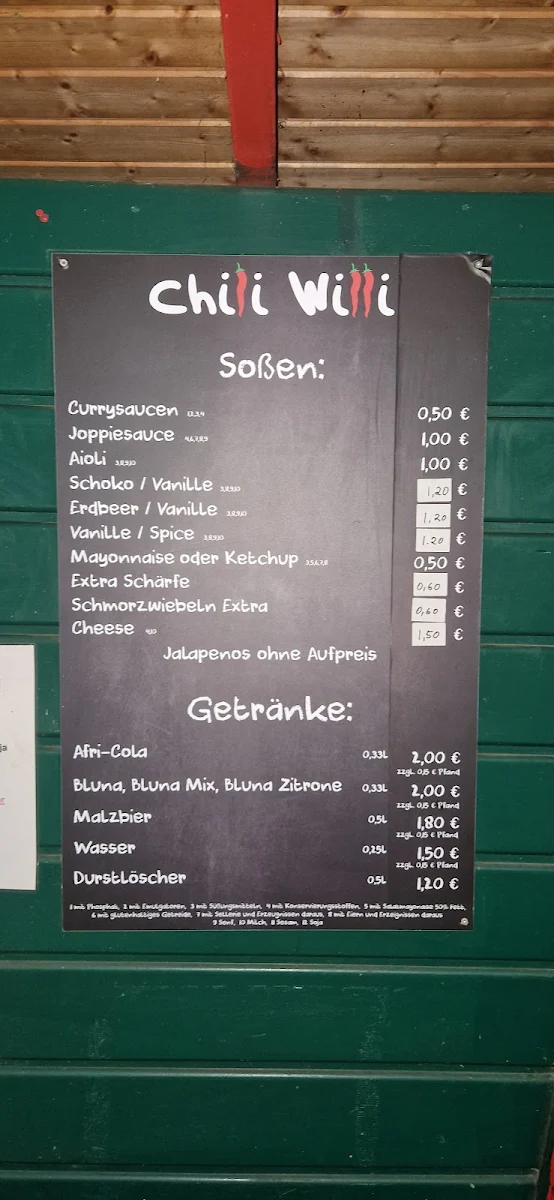 Chili Willi
Soßen:
Currysaucen 1,2,3,4 0,50 €
Joppiesauce 4,6,7,8,9 1,00 €
Aioli 3,8,9,10 1,00 €
Schoko / Vanille 3,8,9,10 1,20 €
Erdbeer / Vanille 3,8,9,10 1,20 €
Vanille / Spice 3,8,9,10 1.20 €
Mayonnaise oder Ketchup 3,5,6,7,8 0,50 €
Extra Schärfe 0,60 €
Schmorzwiebeln Extra 0,60 €
Cheese 4,10 1,50 €
Jalapenos ohne Aufpreis
Getränke:
Afri-Cola 0,33L 2,00 €
zzgl. 0,15 € Pfand
Bluna, Bluna Mix, Bluna Zitrone 0,33L 2,00 €
zzgl. 0,15 € Pfand
Malzbier 0,5L 1,80 €
zzgl. 0,15 € Pfand
Wasser 0,25L 1,50 €
zzgl. 0,15 € Pfand
Durstlöscher 0,5L 1,20 €
1 mit Phosphat, 2 mit Emulgatoren, 3 mit Süßungsmitteln, 4 mit Konservierungsstoffen, 5 mit Salatmayonaise 50% Fett,
6 mit glutenhaltiges Getreide, 7 mit Sellerie und Erzeugnissen daraus, 8 mit Eiern und Erzeignissen daraus
9 Senf, 10 Milch, 11 Sesam, 12 Soja